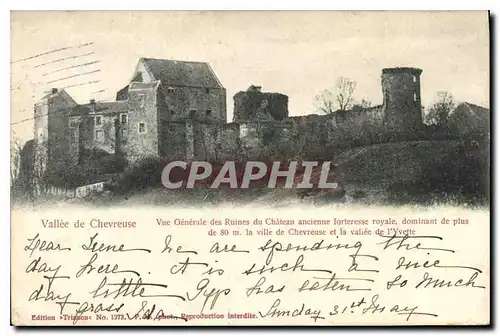 CPARAMA
Vallée de Chevreuse
Vue Générale des Ruines du Château ancienne forteresse royale, dominant de plus
de 80 m. la ville de Chevreuse et la vallée de l'Yvette
Dear Irene We are spending the
day here it is such a nice
day little Gyp has eaten so much
grass Eda Sunday 31st May
Edition «Trianon» No. 1373. Reproduction interdite.